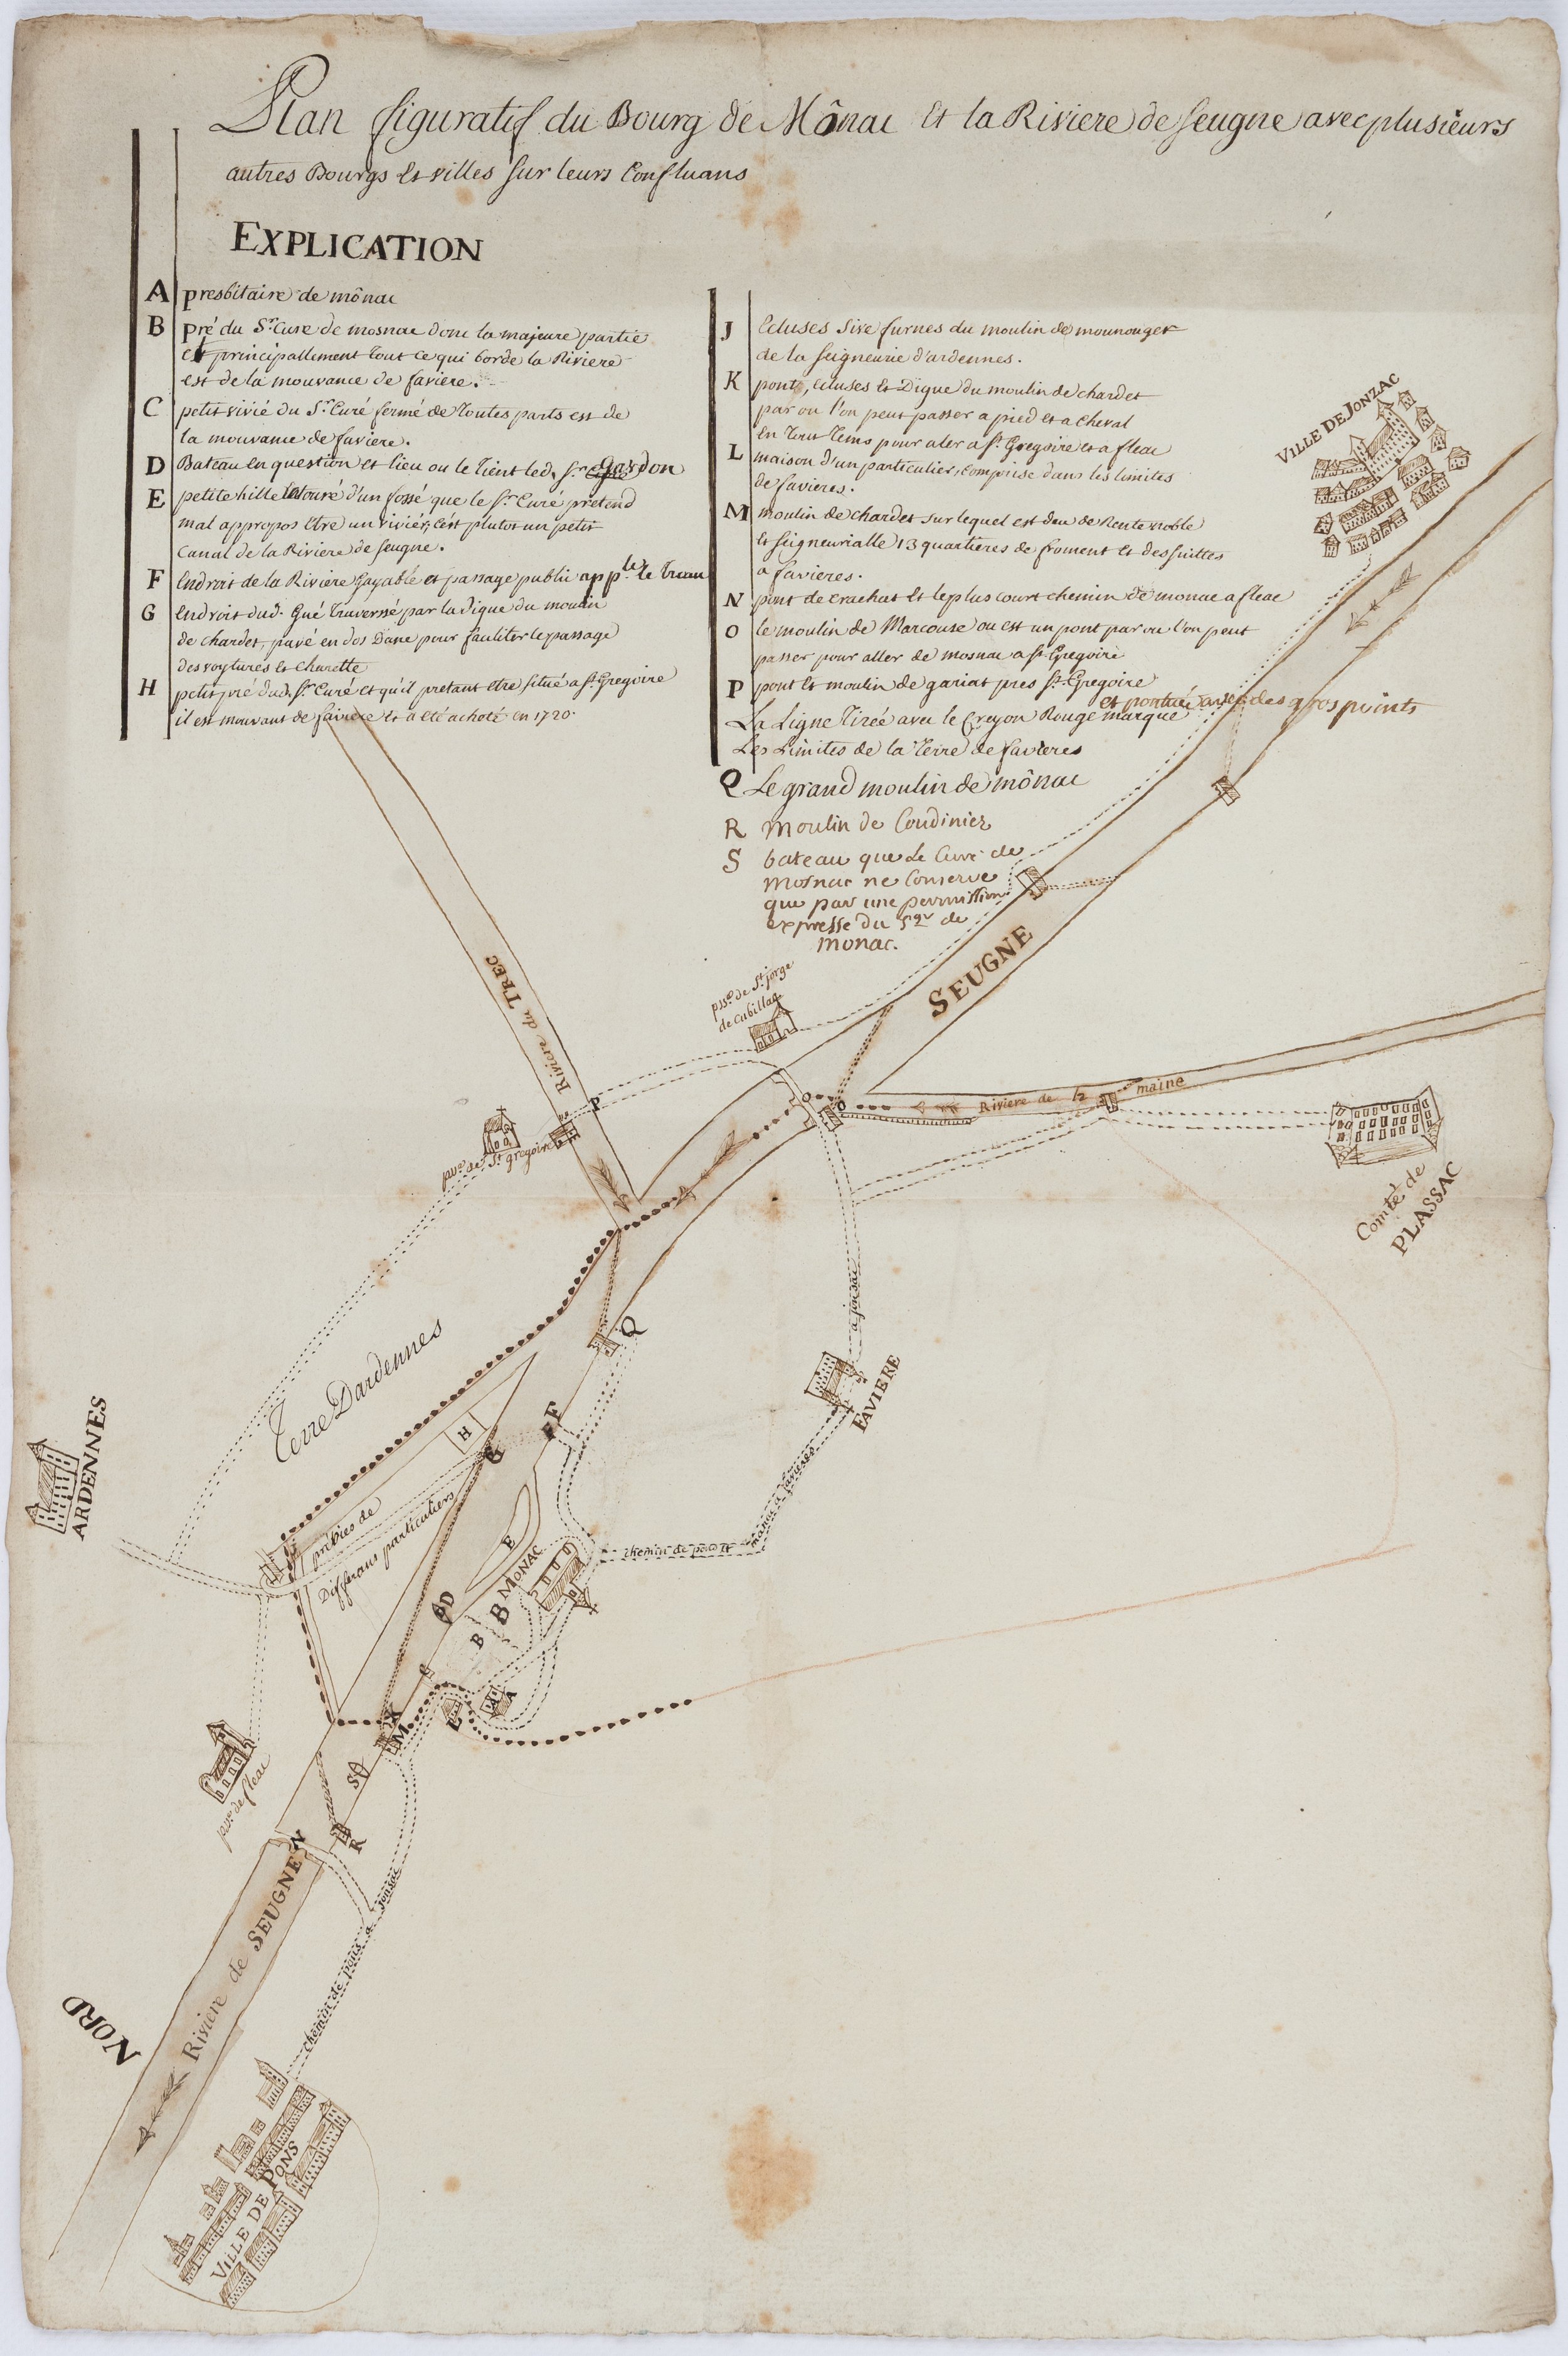 Plan figuratif du Bourg de Mônac Et la Riviere de Seugne avec plusieurs
autres Bourgs Et villes sur leurs Confluans
EXPLICATION
A presbitaire de mônac
B pré du Sr. Cure de mosnac donc la majeure partie
et principallement tout ce qui borde la Riviere
est de la mouvance de faviere.
C petit vivié du Sr. Curé fermé de toutes parts est de
la mouvance de faviere.
D Bateau en question et lieu ou le tient led. Sr. Gardon
E petite hille entouré d'un fossé que le Sr. Curé pretend
mal appropos Etre un vivier, c'est plutot un petit
Canal de la Riviere de Seugne.
F Endroit de la Riviere gayable et passage public app.le le
G Endroit dud. Gué traversé par la digue du moulin
de chardet, pavé en dos Dane pour faciliter le passage
des voytures et charette
H petit pré dud. Sr. Curé et qu'il pretant etre situé a St. Gregoire
il est mouvant de faviere et a été acheté en 1720.
J Ecluses sive furnes du moulin de mounouger
de la Seigneurie d'ardennes.
K ponts, ecluses et Digue du moulin de chardet
par ou l'on peut passer a pied et a cheval
En tout tems pour aler a St. Gregoire et a fleac
L maison d'un particulier, comprise dans les limites
de favieres.
M moulin de chardet sur lequel est deu de Rente noble
et seigneurialle 13 quartieres de froment et des suittes
a favieres.
N pont de crachat et le plus court chemin de monac a fleac
O le moulin de Marcouse ou est un pont par ou l'on peut
passer pour aller de mosnac a St Gregoire
P pont et moulin de gariat pres St. Gregoire
La Ligne tirée avec le Creyon Rouge marque et pontuée avec des gros points
Les Limites de la terre de favieres
Q Le grand moulin de mônac
R moulin de Coudinier
S bateau que Le Curé de
mosnac ne Conserve
que par une permission
expresse du Sgr de
monac.
VILLE DE JONZAC
SEUGNE
Riviere du TREC
psse de St jorge
de cubillac
P
psse de St gregoire
O
O
Riviere de la maine
Comté de
PLASSAC
a jonzac
FAVIERE
Q
Terre Dardennes
ARDENNES
H
F
G
E
pries de
Differans particuliers
chemin de
monac a favieres
MONAC
D
B
B
C
A
L
K
M
S
R
psse de fleac
N
Riviere de SEUGNE
chemin de pons a jonsac
NORD
VILLE DE PONS